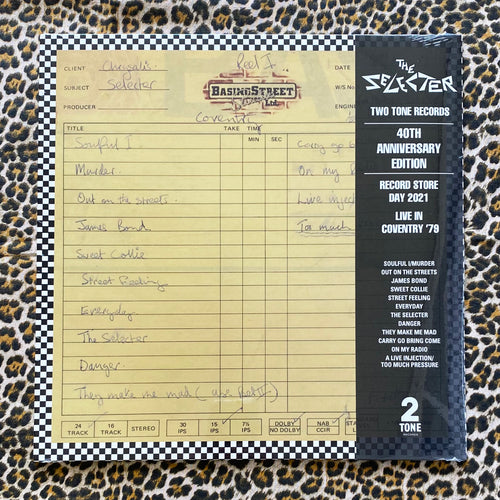 CLIENT Chrysalis. Reel 1 DATE
SUBJECT Selecter BASING STREET W/S No
Studios Ltd.
PRODUCER ENGINE
Coventry
TITLE TAKE TIME
MIN SEC
Soulful I Carry go b
Murder. On my R
Out on the streets. Live injec
James Bond Too much
Sweet Collie
Street Feeling
Everyday
The Selecter
Danger.
They make me mad (use Reel II
24 TRACK 16 TRACK STEREO 30 IPS 15 IPS 7½ IPS DOLBY NO DOLBY NAB CCIR
THE
SELECTER
TWO TONE RECORDS
40TH
ANNIVERSARY
EDITION
RECORD STORE
DAY 2021
LIVE IN
COVENTRY '79
SOULFUL I/MURDER
OUT ON THE STREETS
JAMES BOND
SWEET COLLIE
STREET FEELING
EVERYDAY
THE SELECTER
DANGER
THEY MAKE ME MAD
CARRY GO BRING COME
ON MY RADIO
A LIVE INJECTION/
TOO MUCH PRESSURE
2
TONE
RECORDS